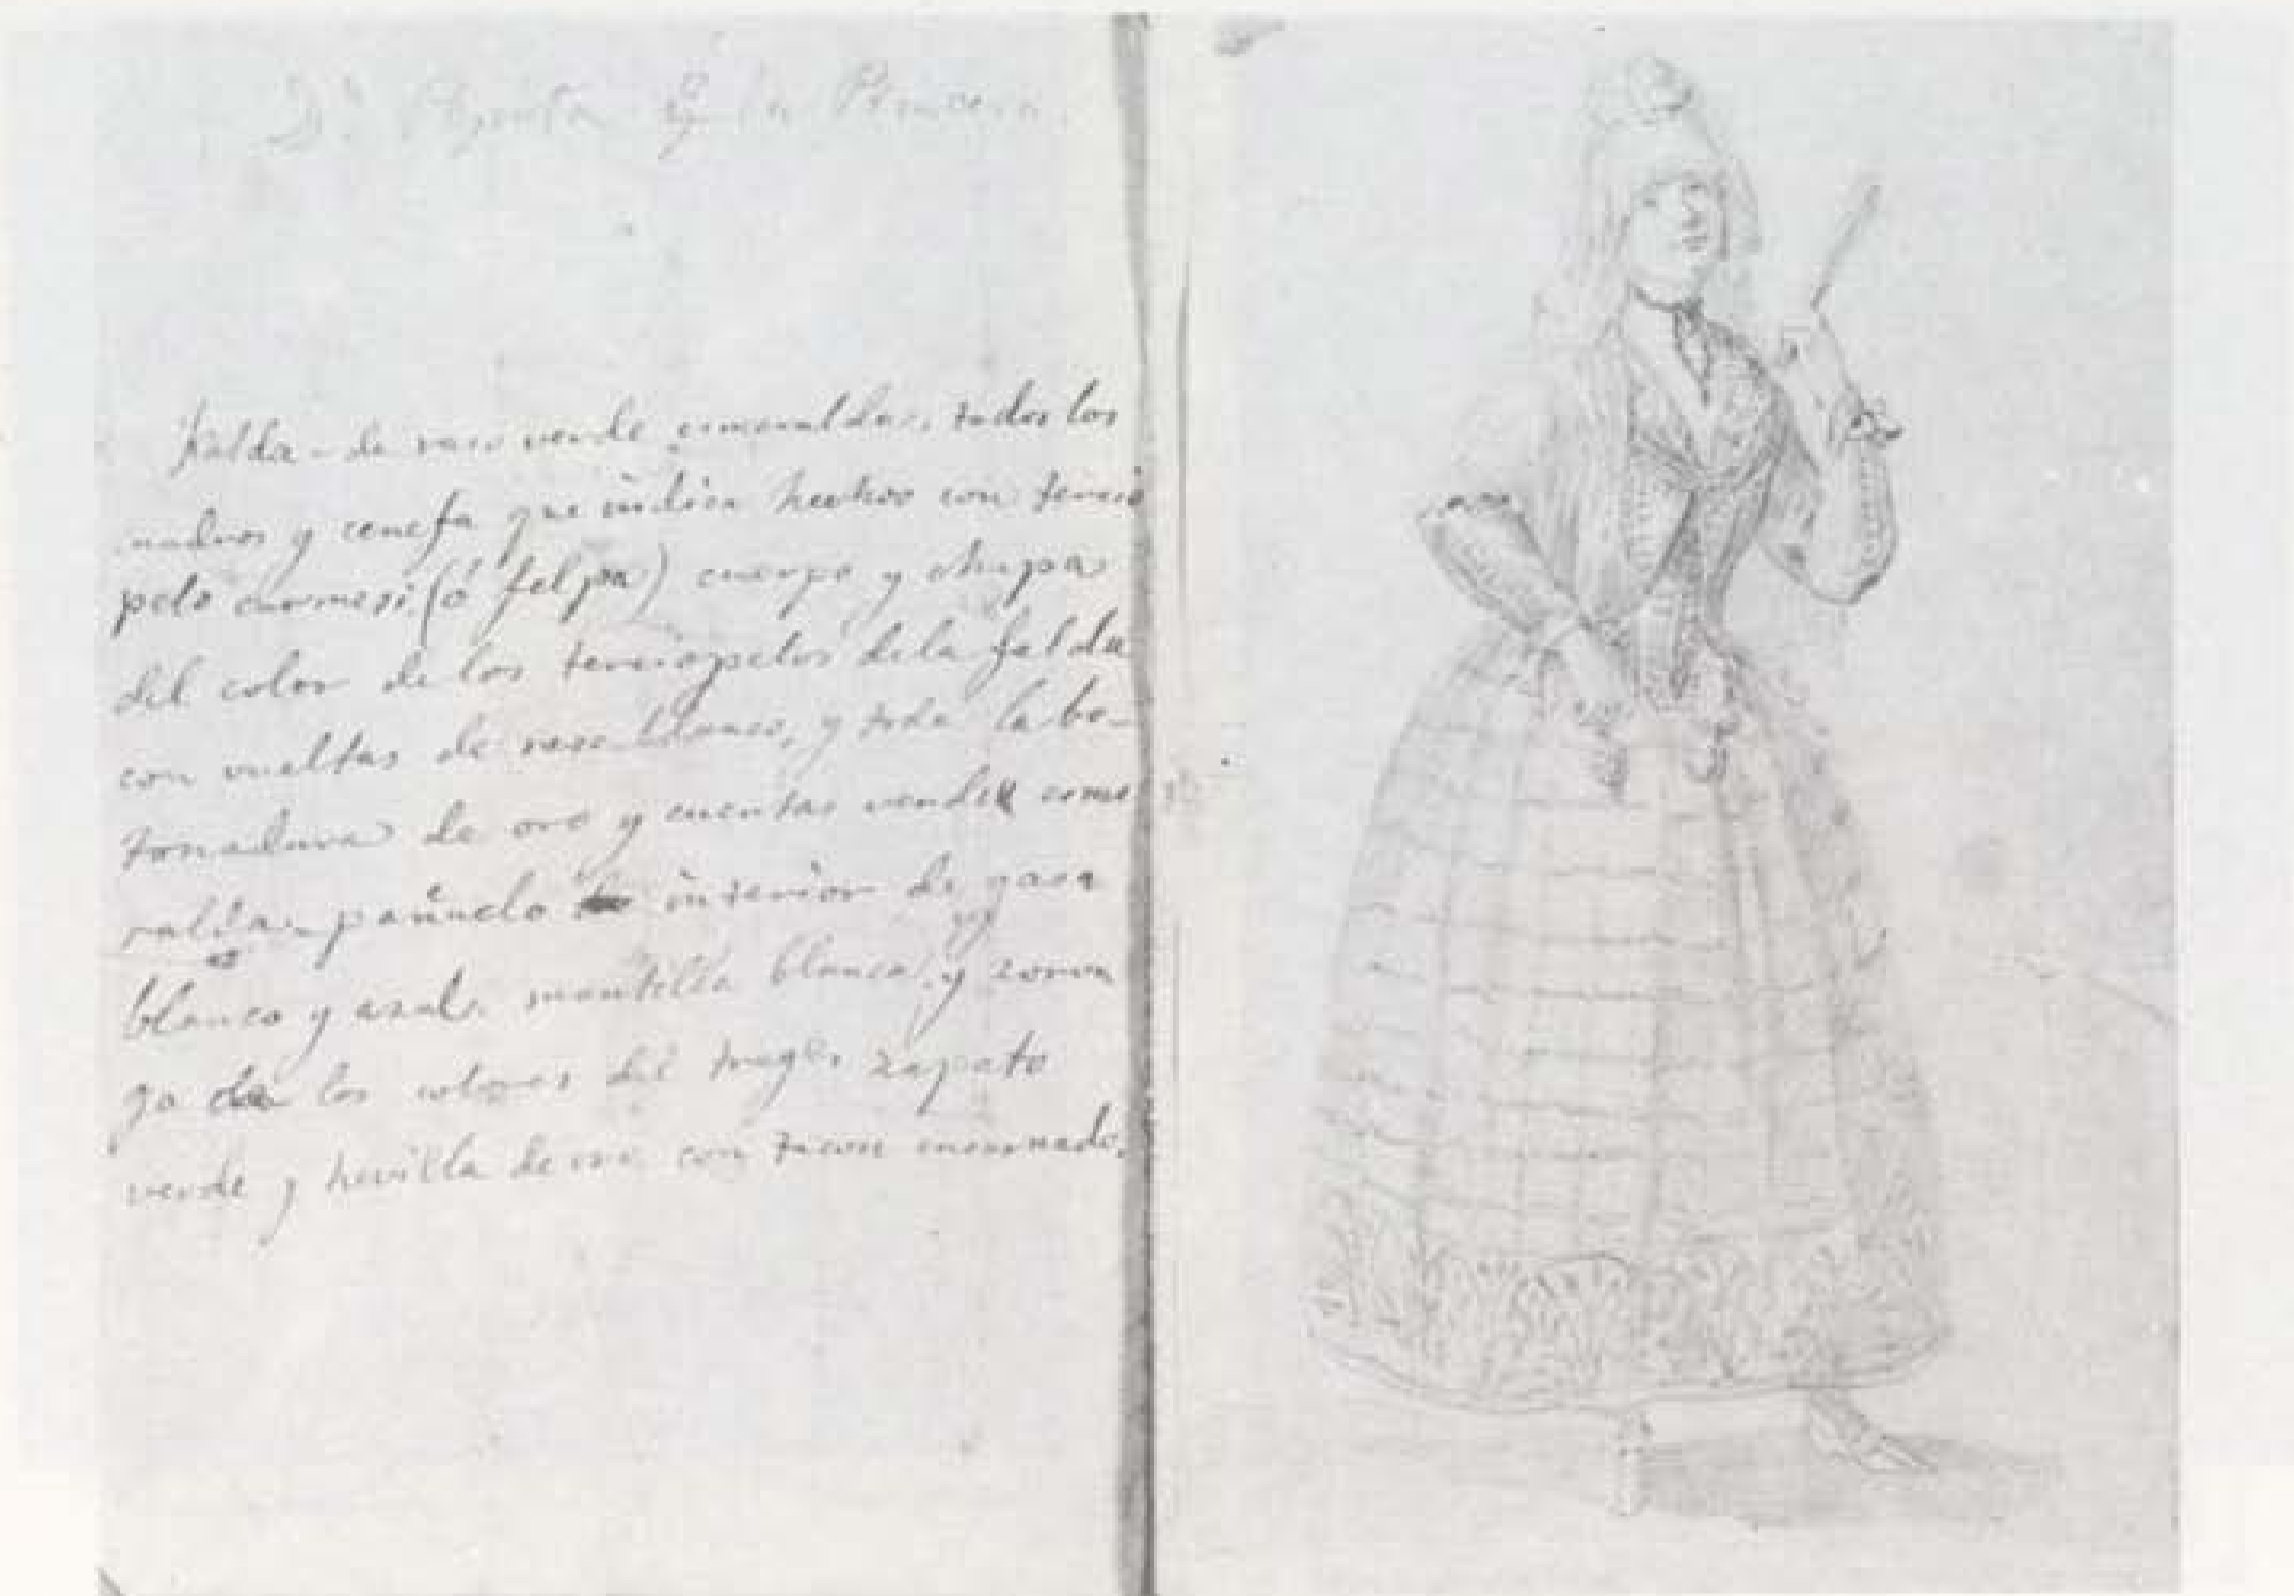 la Princesa.
Falda - de raso verde esmeralda, todos los
cuadros y cenefa que indica hechos con tercio
pelo carmesi (ó felpa) cuerpo y chupa
del color de los terciopelos de la falda
con vueltas de raso blanco, y toda la bo-
tonadura de oro y cuentas verdes esme
ralda. pañuelo interior de gasa
blanco y azul. mantilla blanca, y
los colores del trage. zapato
verde y hevilla de oro con tacon encarnado.